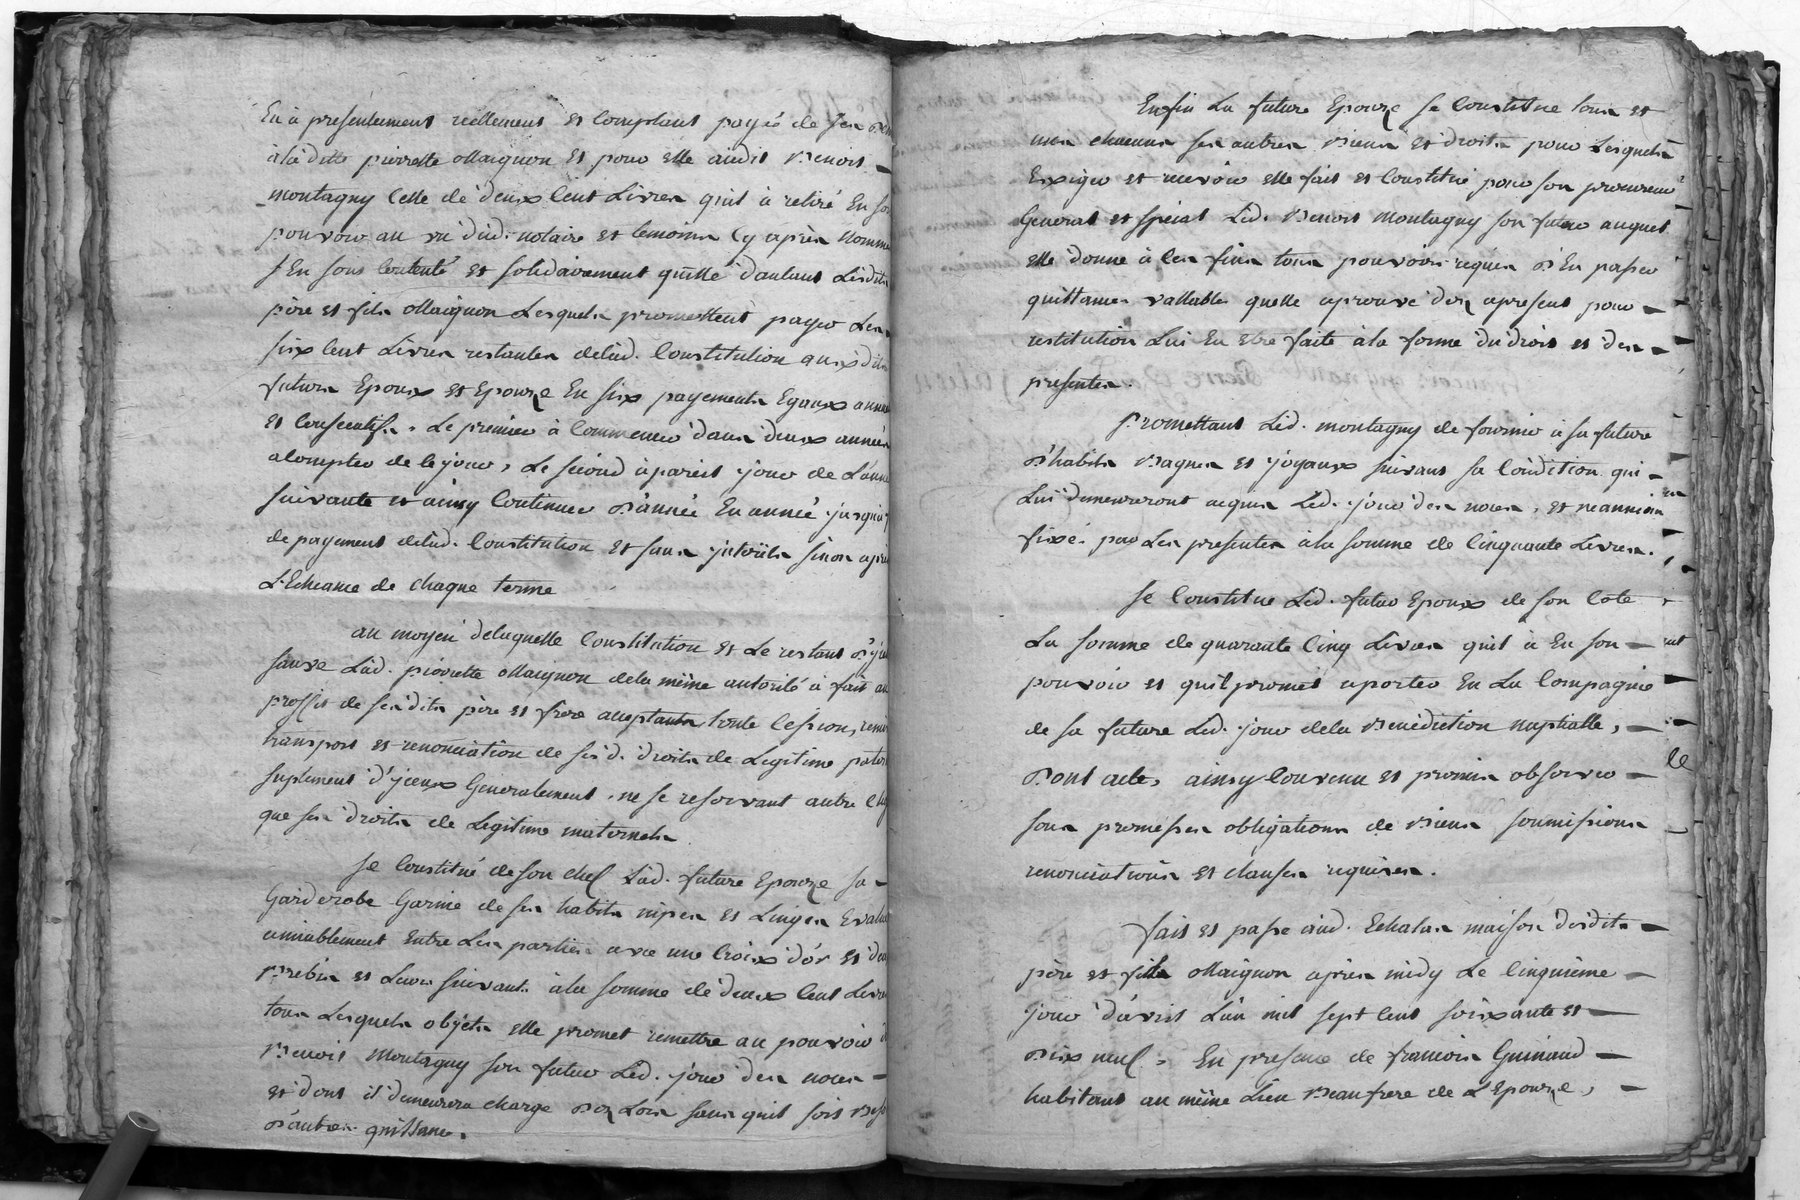 En à présentement réellement et comptant payés de ses
à la ditte pierrette Maignon et pour elle audit Benoit
montagny celle de deux cent Livres quil à retiré En son
pouvoir au vu dud. notaire et temoins cy après nommé
s'En sont contenté et solidairement quitté d'autant Lesdits
père et fils Maignon Lesquels promettent payer Les
six cent Livres restantes delad. Constitution auxdits
futurs Epoux et Epouze En six payements Egaux annuels
et consecutifs. Le premier à commencer dans deux années
a compter de ce jour, Le sécond à pareil jour de L'année
suivante et ainsy continuer d'année En année jusquà
de payement delad. Constitution et sans intérêts sinon après
L'Echeance de chaque terme
au moyen delaquelle Constitution et Le restant d'y
sauve Lad. pierrette Maignon dela même autorité à fait au
proffit de sesdits père et frere acceptants toute cession, remise
transport et renonciation de sesd. droits de Legitime paternels
suplement d'yceux Generalement, ne se reservant autre chose
que ses droits de Legitime maternels.
Se Constitue de son chef Lad. future Epouze sa
Garderobe Garnie de ses habits nipes et Linges Evalué
amiablement Entre Les parties avec une Croix d'or et deux
Brebis et Leurs suivants à la somme de deux cent Livres
tous Lesquels objets elle promet remettre au pouvoir d
Benoit Montagny son futur Led. jour des noces
et dont il demeurera charge Dez Lors sans quil soit Besoin
D'autre quittance.
Enfin La future Epouze se Constitue tous et
uns chacuns ses autres Biens et droits pour Lesquels
Exiger et recevoir elle fait et Constitué pour son procureur
General et special Led. Benoit Montagny son futur auquel
elle donne à ces fins tous pouvoirs réquis D'En passer
quittances vallables quelle aprouve dez apresent pour
restitution Lui En etre faite à la forme du droit et des
presentes.
Promettant Led. montagny de fournir à sa future
D'habits Bagues et joyaux suivant sa Condition qui
Lui demeureront acquis Led. jour des noces, et neanmoins
fixé par Les presentes à la somme de Cinquante Livres.
Se Constitue Led. futur Epoux de son Coté
La somme de quarante Cinq Livres quil à En son
pouvoir et quil promet aporter En La Compagnie
de sa future Led. jour dela Benediction nuptialle,
Dont acte, ainsy Convenu et promis observer
sous promesses obligations de Biens soumissions
renonciations et clauses requises.
fait et passé aud. Echalas maison desdits
père et fils Maignon après midy Le Cinquième
jour d'avril L'an mil sept cent soixante et
Dix neuf. En presence de francois Guinand
habitant au même Lieu Beaufrere de L'Epouze,